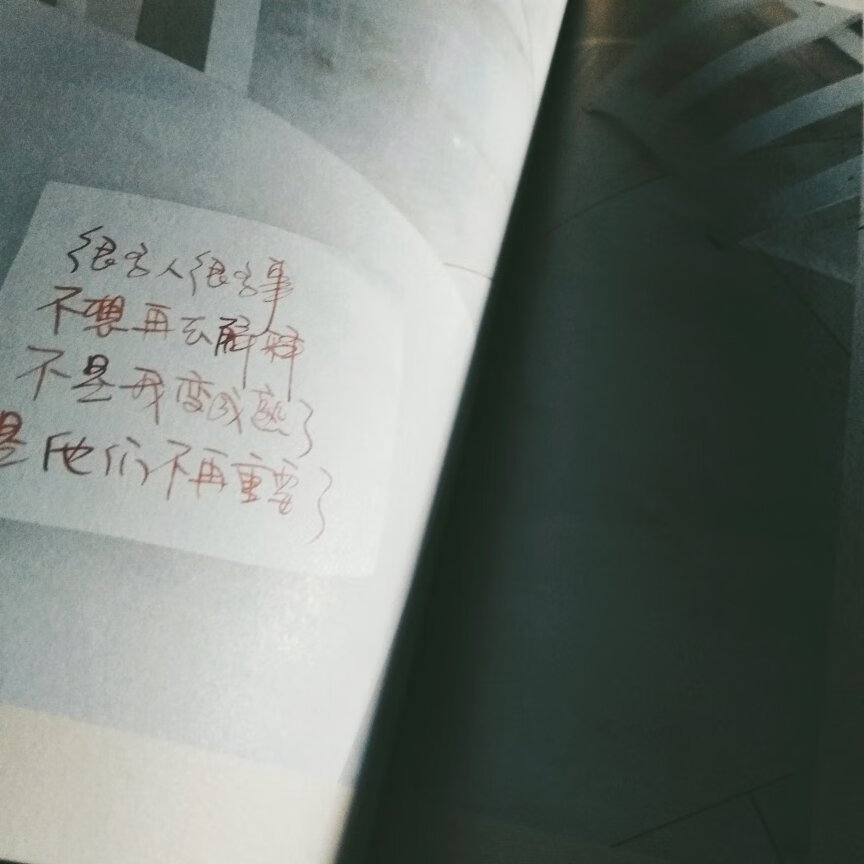 很多人很多事
不想再去解释
不是我变成熟了
是他们不再重要了